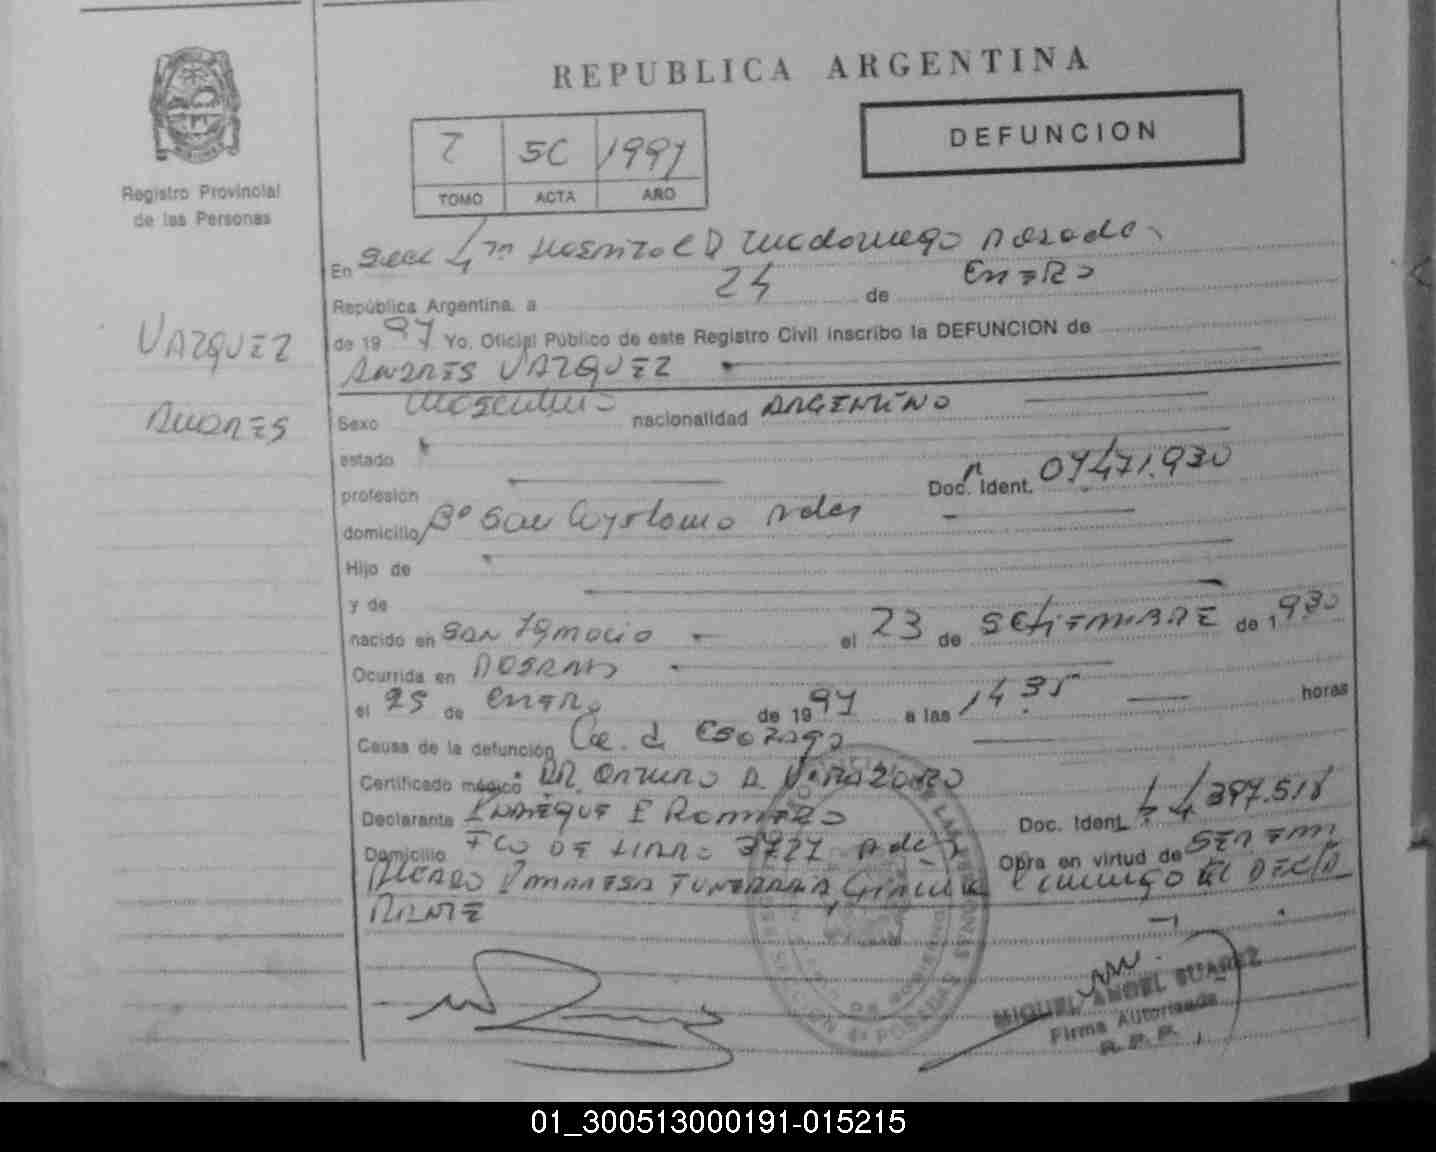 REPUBLICA ARGENTINA
DEFUNCION
1997
TOMO ACTA AÑO
Registro Provincial
de las Personas
En Secc 4ta Hospital D Posadas
República Argentina, a 24 de Enero
de 1997 Yo, Oficial Público de este Registro Civil inscribo la DEFUNCION de
ANDRES VAZQUEZ
VAZQUEZ
ANDRES
Sexo Masculino nacionalidad ARGENTINO
estado
profesión Doc. Ident. 07471.930
domicilio Bº San Pdas
Hijo de
y de
nacido en San Ignacio el 23 de SETIEMBRE de 1930
Ocurrida en POSADAS
el de ENERO de 1997 a las 14 35 horas
Causa de la defunción Ca. d Esofago
Certificado médico DR. A.
Declarante ENRIQUE E ROMERO Doc. Ident. 397.518
Domicilio FCO DE 3727 Pdas Obra en virtud de SER EM
PLEADO EMPRESA FUNERARIA, conmigo EL DECLA
RANTE
SECCION 4ª POSADAS
MIGUEL ANGEL SUAREZ
Firma Autorizada
R.P.P.
01_300513000191-015215